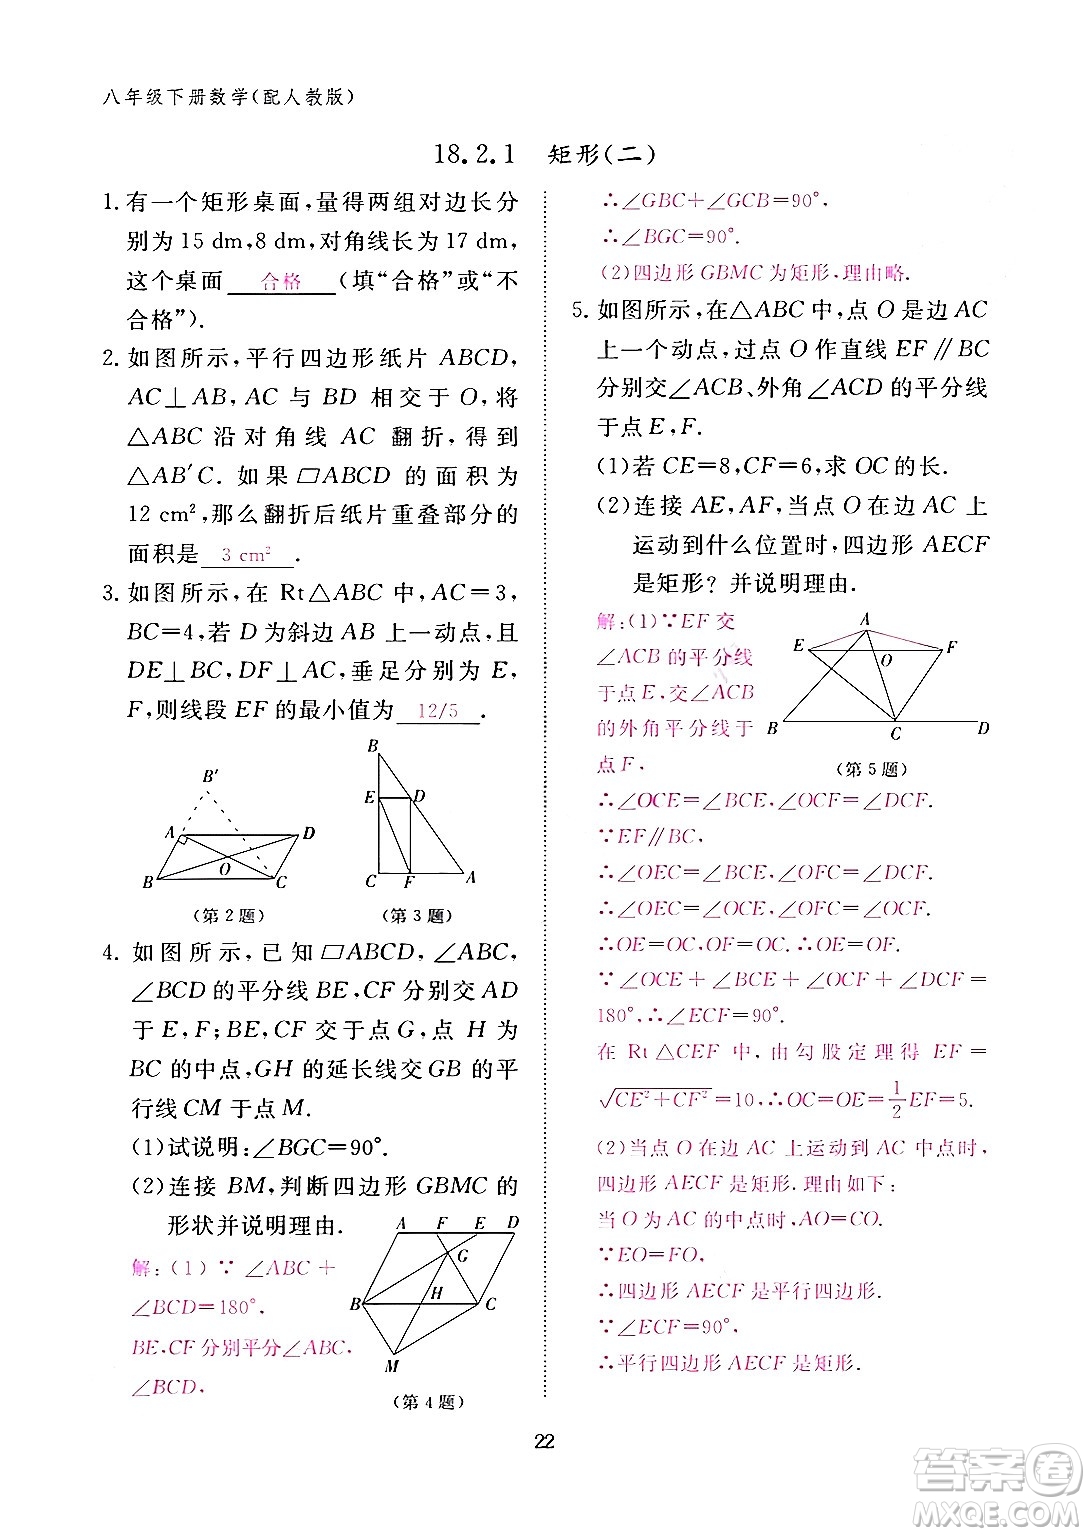 八年级下册数学(配人教版)
18.2.1 矩形(二)
1. 有一个矩形桌面,量得两组对边长分
别为 15 dm,8 dm,对角线长为 17 dm,
这个桌面 合格 (填“合格”或“不
合格”).
2. 如图所示,平行四边形纸片 ABCD,
AC⊥AB,AC 与 BD 相交于 O,将
△ABC 沿对角线 AC 翻折,得到
△AB′C. 如果▱ABCD 的面积为
12 cm²,那么翻折后纸片重叠部分的
面积是 3 cm² .
3. 如图所示,在 Rt△ABC 中,AC=3,
BC=4,若 D 为斜边 AB 上一动点,且
DE⊥BC,DF⊥AC,垂足分别为 E,
F,则线段 EF 的最小值为 12/5 .
B′
A
D
O
B
C
(第 2 题)
B
E
D
C
F
A
(第 3 题)
4. 如图所示,已知▱ABCD,∠ABC,
∠BCD 的平分线 BE,CF 分别交 AD
于 E,F;BE,CF 交于点 G,点 H 为
BC 的中点,GH 的延长线交 GB 的平
行线 CM 于点 M.
(1)试说明:∠BGC=90°.
(2)连接 BM,判断四边形 GBMC 的
形状并说明理由.
解:(1)∵∠ABC+
∠BCD=180°.
BE,CF 分别平分∠ABC,
∠BCD,
A
F
E
D
G
B
H
C
M
(第 4 题)
∴∠GBC+∠GCB=90°,
∴∠BGC=90°.
(2)四边形 GBMC 为矩形,理由略.
5. 如图所示,在△ABC 中,点 O 是边 AC
上一个动点,过点 O 作直线 EF∥BC
分别交∠ACB、外角∠ACD 的平分线
于点 E,F.
(1)若 CE=8,CF=6,求 OC 的长.
(2)连接 AE,AF,当点 O 在边 AC 上
运动到什么位置时,四边形 AECF
是矩形?并说明理由.
解:(1)∵EF 交
∠ACB 的平分线
于点 E,交∠ACB
的外角平分线于
点 F,
A
E
O
F
B
C
D
(第 5 题)
∴∠OCE=∠BCE,∠OCF=∠DCF.
∵EF∥BC,
∴∠OEC=∠BCE,∠OFC=∠DCF.
∴∠OEC=∠OCE,∠OFC=∠OCF.
∴OE=OC,OF=OC.∴OE=OF.
∵∠OCE+∠BCE+∠OCF+∠DCF=
180°,∴∠ECF=90°.
在 Rt△CEF 中,由勾股定理得 EF=
√(CE²+CF²)=10,∴OC=OE=1/2EF=5.
(2)当点 O 在边 AC 上运动到 AC 中点时,
四边形 AECF 是矩形.理由如下:
当 O 为 AC 的中点时,AO=CO.
∵EO=FO,
∴四边形 AECF 是平行四边形.
∵∠ECF=90°,
∴平行四边形 AECF 是矩形.
22
答案圈
MXQE.COM